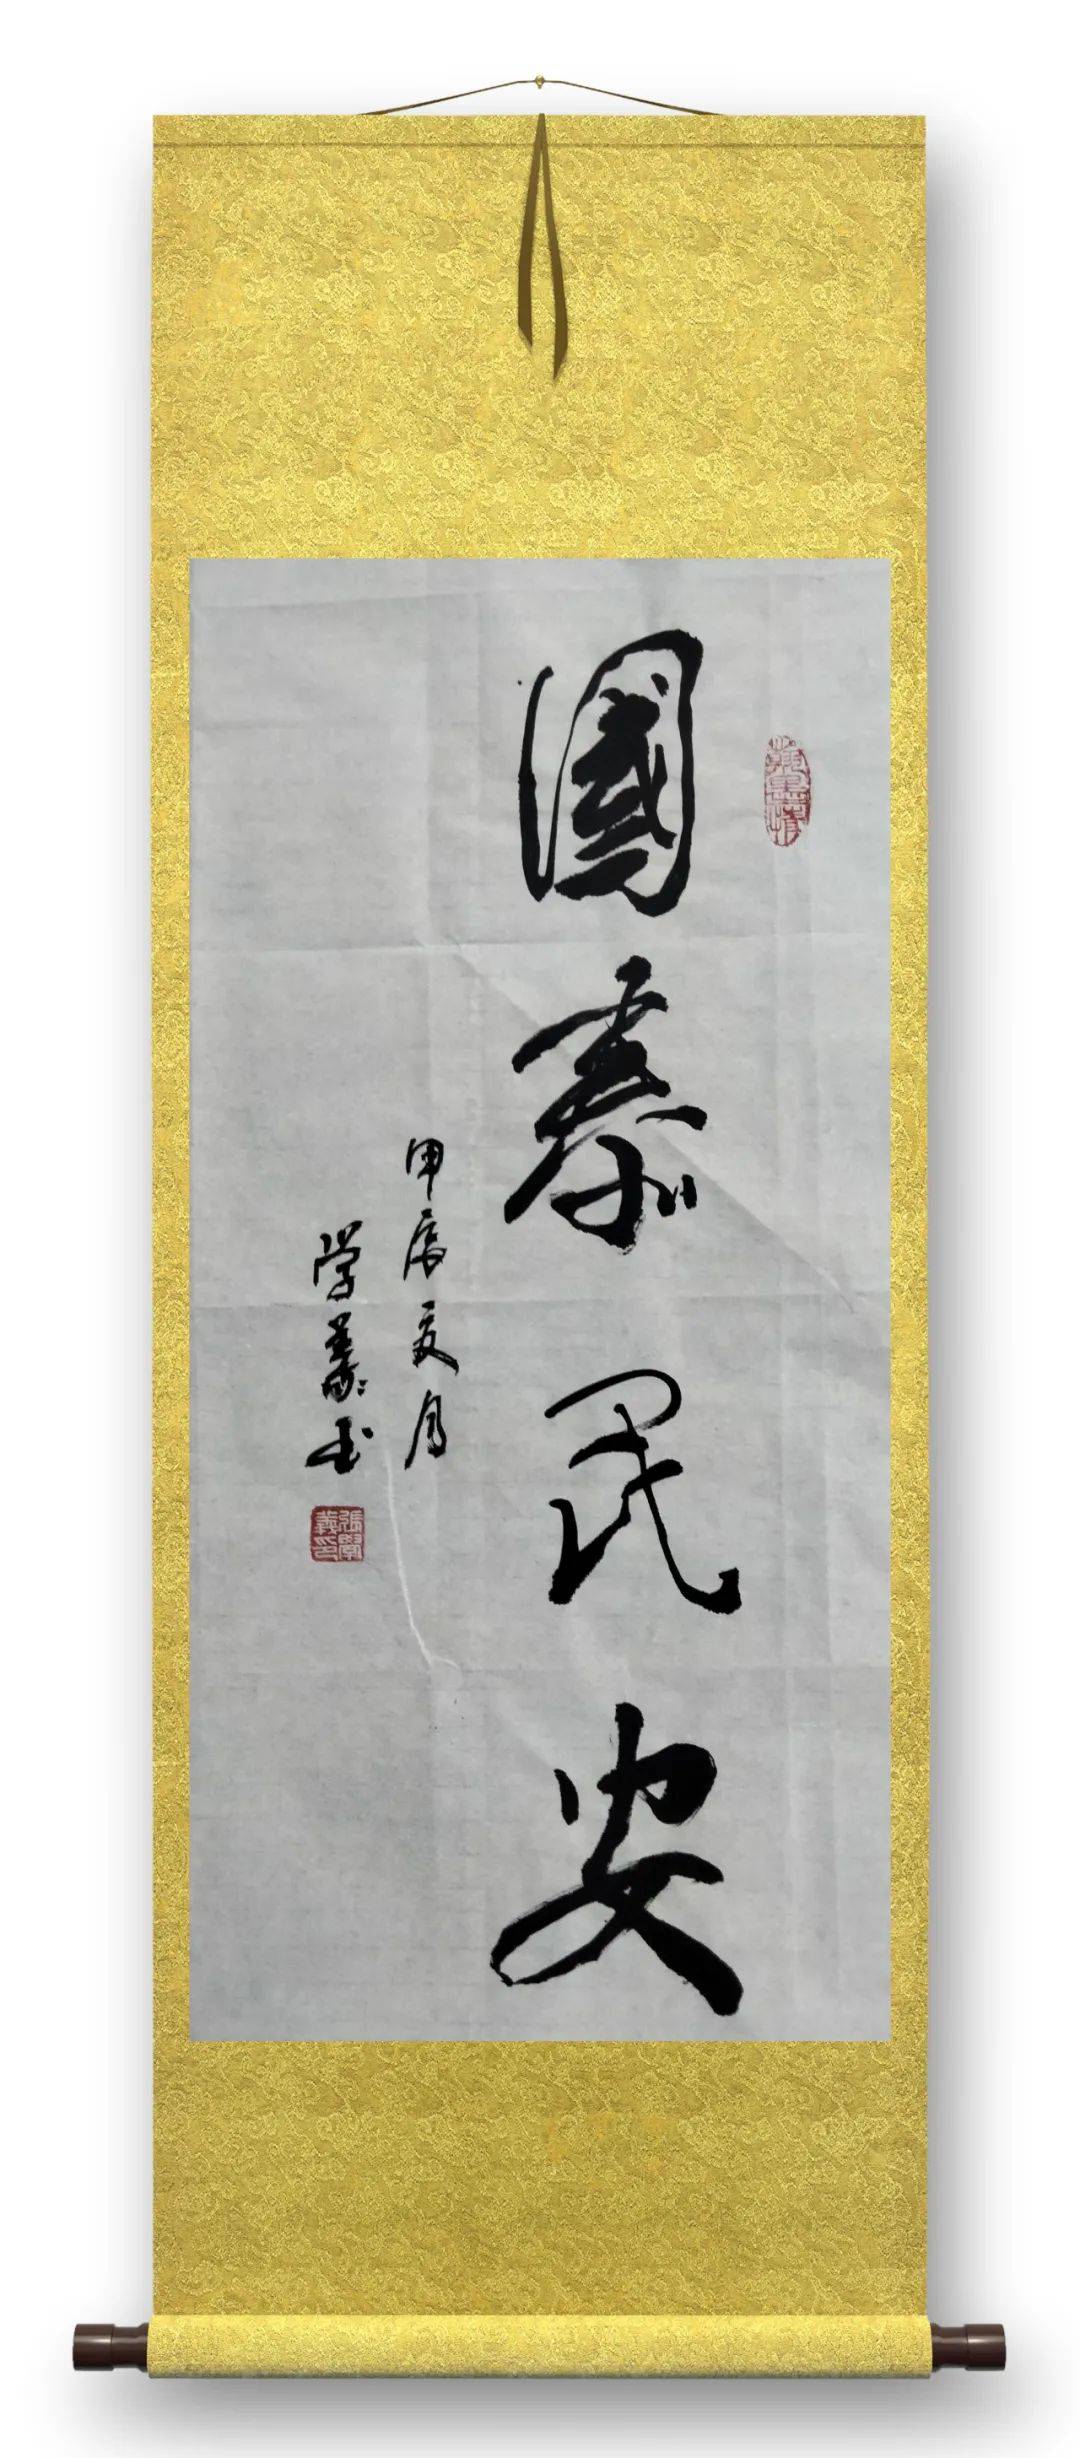 國泰民安
甲辰夏月
学義书
張學
義印